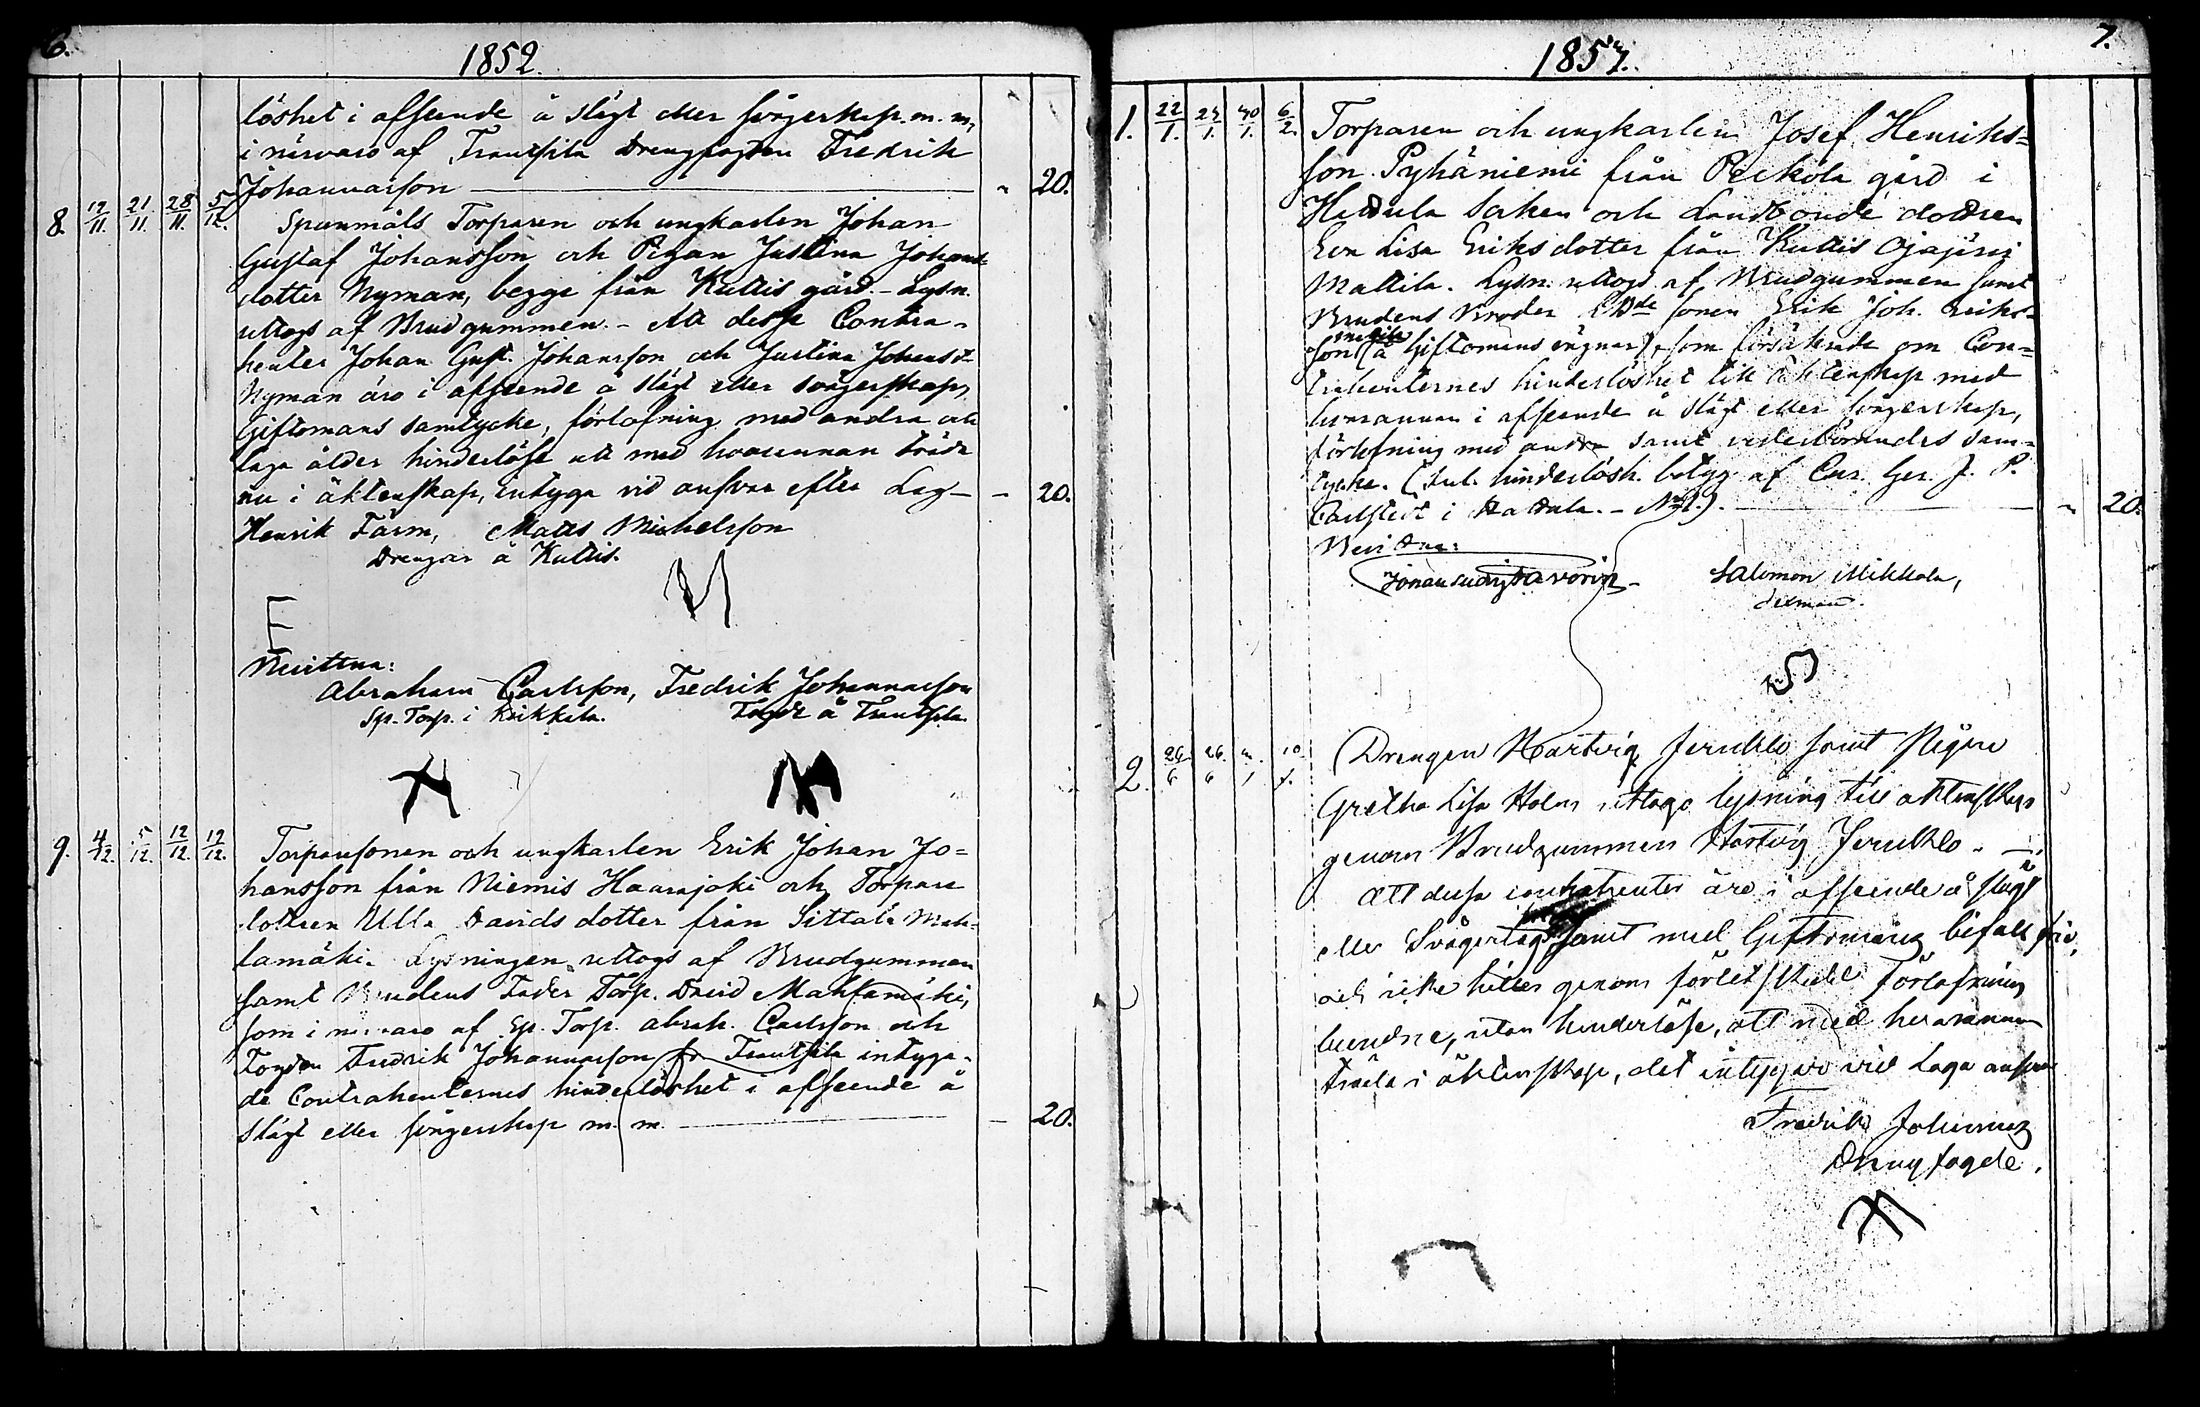 6.
1852.
löshet i afseende å slägt eller svågerskap m. m.
i närvaro af Frantsila Drengfogden Fredrik
Johannasson — " 20.
8. 12/11. 21/11. 28/11. 5/12. Spanmåls Torparen och ungkarlen Johan
Gustaf Johansson och Pigan Justina Johans-
dotter Nyman, begge från Kuttis gård. - Lysn.
uttogs af Brudgummen. - Att desse Contra-
henter Johan Gust. Johansson och Justina Johansdr
Nyman äro i afseende å slägt eller svågerskap,
Giftomans samtycke, förlofning med andra och
laga ålder hinderlöse att med hvarannan träda
nu i äktenskap, intyga vid ansvar efter Lag — — 20.
Henrik Färm, Matts Michelsson
Drengar å Kuttis.
Bevittna:
Abraham Carlsson, Fredrik Johannasson
Sp. Torp. i Fogde å Frantsila.
9. 4/12. 5/12. 12/12. 19/12. Torparesonen och ungkarlen Erik Johan Jo=
hansson från Niemis Haarajoki och Torpare
dottren Ulla Davidsdotter från Sittala Mah-
lamäki. Lysningen uttogs af Brudgummen
samt Brudens Fader Torp. David Mahlamäki,
som i närvaro af Sp. Torp. Abrah. Carlsson och
Fogden Fredrik Johannasson fr. Frantsila intyga-
de Contrahenternes hinderlöshet i afseende å
slägt eller svågerskap m. m. — — 20.
7.
1857.
1. 22/1. 25/1. 30/1. 6/2. Torparen och ungkarlen Josef Henriks=
son Pyhäniemi från Perkola gård i
Hattula Socken och Landbonde dottren
Eva Lisa Eriksdotter från Kuttis Ojajärvi
Mattila. Lysn. uttogs af Brudgummen samt
Brudens Broder LBde sonen Erik Joh. Eriks-
son (i Giftomans ägnar), som försäkrade om Con=
trahenternes hinderlöshet till äktenskap med
hvarannan i afseende å slägt eller svågerskap,
förlofning med andra samt vederbörandes sam=
tycke. (Enl. hinderlösh. betyg af Cur. Ger. J. P.
Carlstedt i Hattula. - No 1). — " 20.
Bevittna:
Salomon Mikkola,
2. 26/6 26/6 Drengen Hartvig samt Pigan
Gretha Lisa Holm uttogo lysning till äktenskap
genom Brudgummen Hartvig
Att dessa contrahenter äro i afseende å slägt
eller Svågerlag samt med Giftomans bifall fria,
och icke heller genom förlofning
bundne, utan hinderlöse, att med hvarannan
träda i äktenskap, det intygar vid Laga ansvar
Fredrik
Drengfogde.